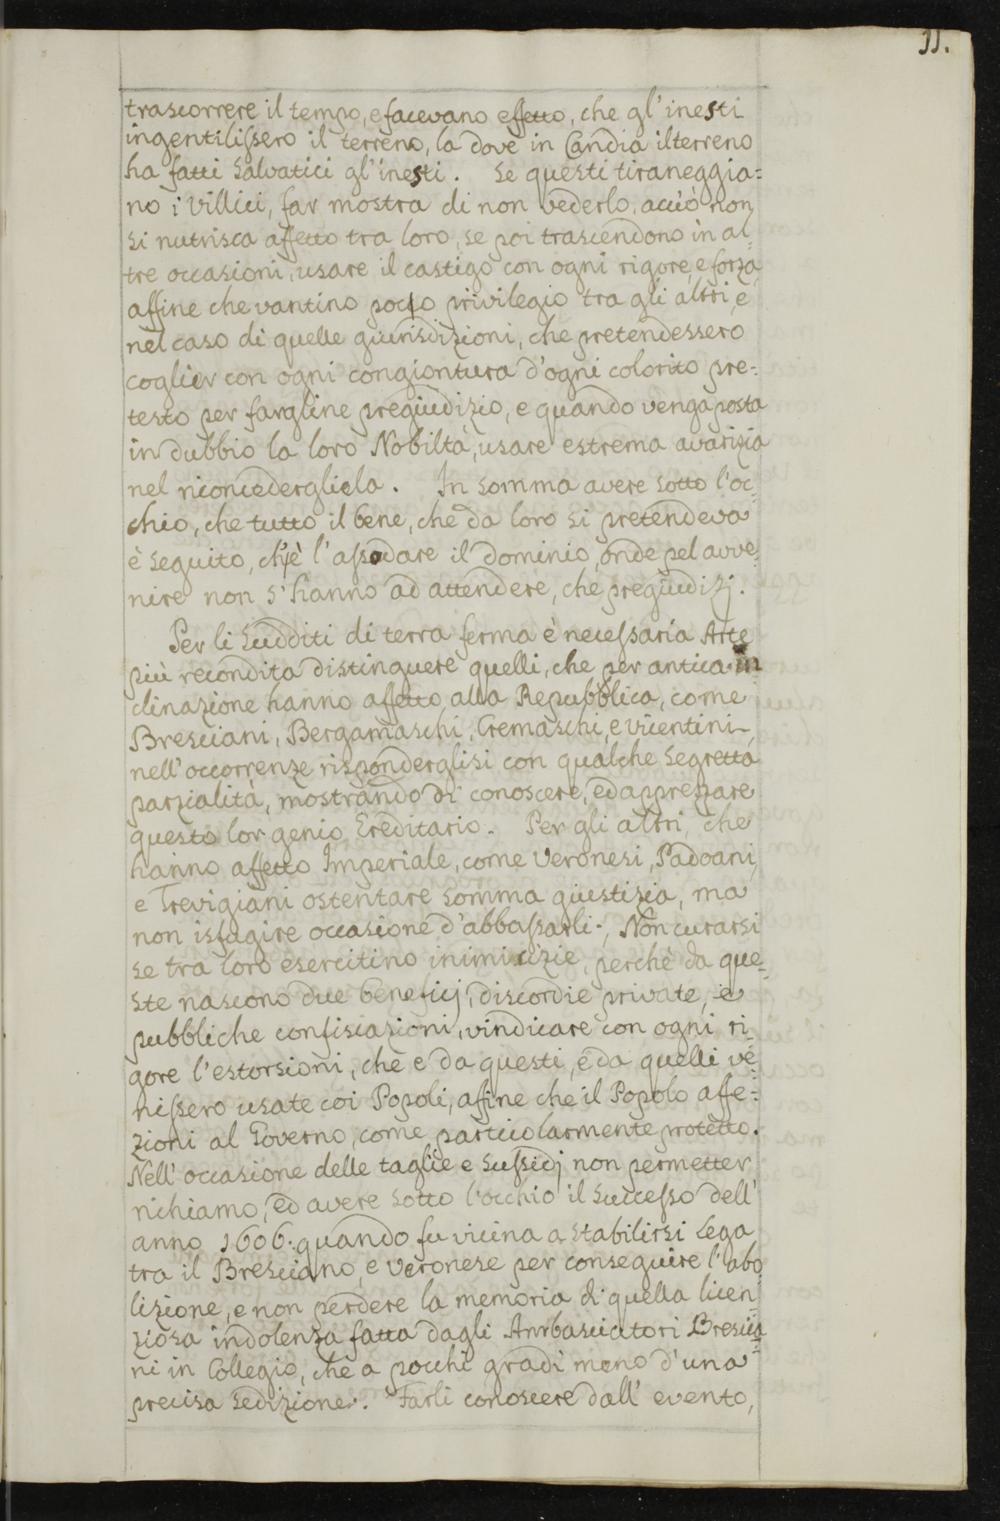 11.
trascorrere il tempo, e facevano effetto, che gl'inesti
ingentilissero il terreno, la dove in Candia il terreno
ha fatti Salvatici gl'inesti. Se questi tiraneggia=
no i Villici, far mostra di non vederlo, acciò non
si nutrisca affetto tra loro, se poi trascendono in al=
tre occasioni, usare il castigo con ogni rigore, e forza
affine che vantino poco privilegio tra gli altri, e
nel caso di quelle giurisdizioni, che pretendessero
coglier con ogni congiontura d'ogni colorito pre=
testo per fargline pregiudizio, e quando venga posta
in dubbio la loro Nobiltà, usare estrema avarizia
nel riconcedergliela. In somma avere sotto l'oc=
chio, che tutto il bene, che da loro si pretendeva
è seguito, ch'è l'assodare il dominio, onde pel avve=
nire non s'hanno ad attendere, che pregiudizj.
Per li Sudditi di terra ferma è necessaria Arte
più recondita distinguere quelli, che per antica in
clinazione hanno affetto alla Repubblica, come
Bresciani, Bergamaschi, Cremaschi, e Vicentini,
nell'occorrenze risponderglisi con qualche segretta
parzialità, mostrando di conoscere, ed apprezzare
questo lor genio Ereditario. Per gli altri, che
hanno affetto Imperiale, come Veronesi, Padoani,
e Trevigiani ostentare somma giustizia, ma
non isfugire occasione d'abbassarli; Non curarsi
se tra loro esercitino inimicizie, perchè da que=
ste nascono due beneficj, discordie private, e
pubbliche confiscazioni, vindicare con ogni ri=
gore l'estorsioni, che e da questi, e da quelli ve=
nissero usate coi Popoli, affine che il Popolo affe=
zioni al Governo, come particolarmente protetto.
Nell'occasione delle taglie e Sussidj non permetter
richiamo, ed avere sotto l'occhio il Successo dell'
anno 1606. quando fu vicina a stabilirsi lega
tra il Bresciano, e Veronese per conseguire l'abo
lizione, e non perdere la memoria di quella licen=
ziosa indolenza fatta dagli Ambasciatori Brescia=
ni in Collegio, che a pochi gradi meno d'una
precisa sedizione. Farli conoscere dall'evento,